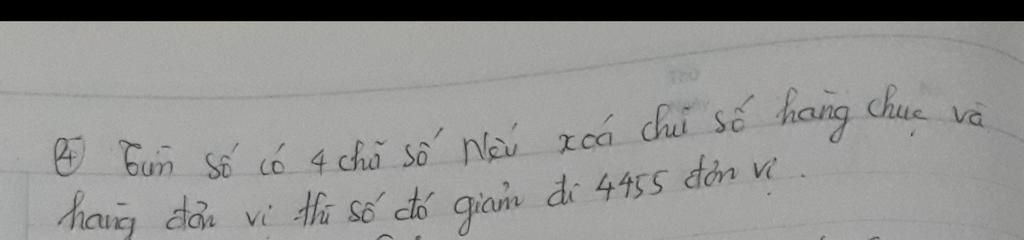 ④ Tìm số có 4 chữ số Nếu xoá chữ số hàng chục và
hàng đơn vị thì số đó giảm đi 4455 đơn vị.